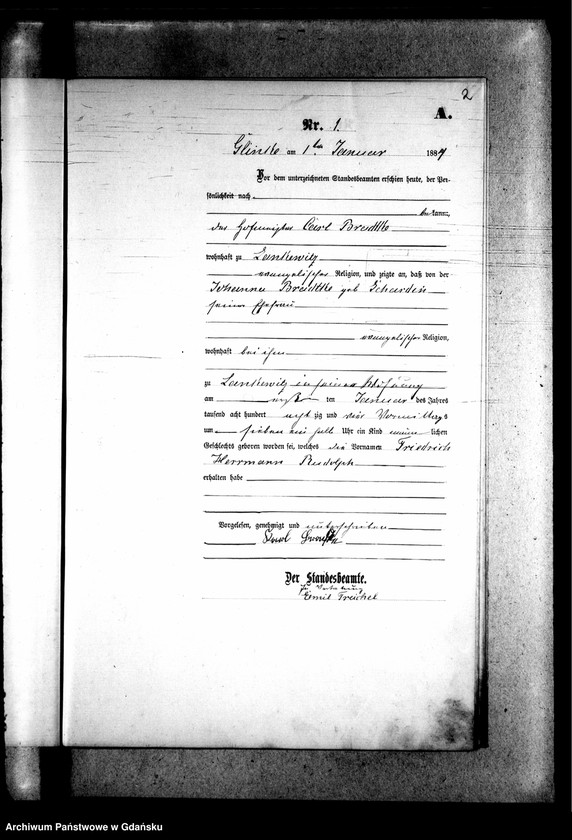 2
A.
Nr. 1.
Glinke am 1ten Januar 1884
Vor dem unterzeichneten Standesbeamten erschien heute, der Per-
sönlichkeit nach
bekannt,
der Hofmeister Carl
wohnhaft zu Lankewitz
evangelischer Religion, und zeigte an, daß von der
Johanna geb
seiner Ehefrau
evangelischer Religion,
wohnhaft bei ihm
zu Lankewitz in seiner Wohnung
am ersten ten Januar des Jahres
tausend acht hundert acht zig und vier Vormittags
um sieben ein halb Uhr ein Kind männ lichen
Geschlechts geboren worden sei, welches die Vornamen Friedrich
Herrmann Rudolph
erhalten habe
Vorgelesen, genehmigt und unterschrieben
Der Standesbeamte.
In Vertretung
Emil
Archiwum Państwowe w Gdańsku